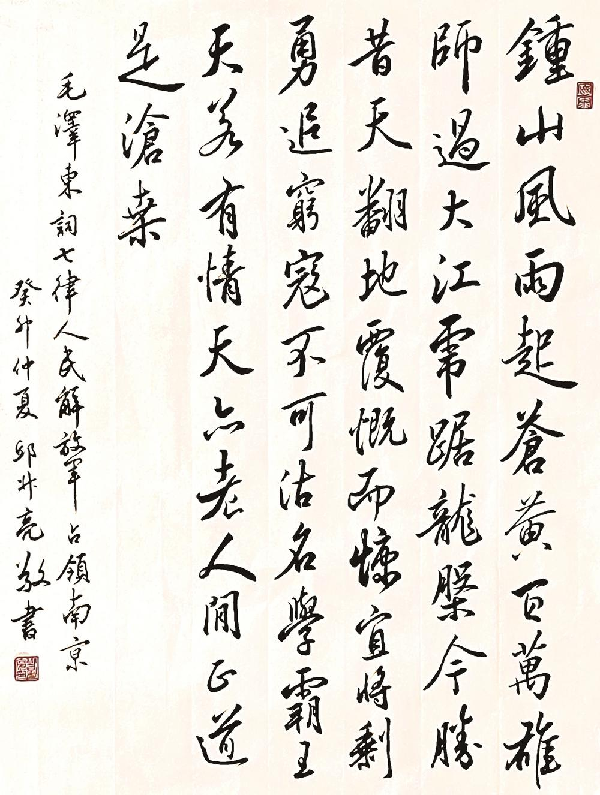 鍾山風雨起蒼黄百萬雄
師過大江虎踞龍盤今勝
昔天翻地覆慨而慷宜將剩
勇追窮寇不可沽名學霸王
天若有情天亦老人間正道
是滄桑
毛澤東詞七律人民解放軍占領南京
癸卯仲夏邱升亮敬書